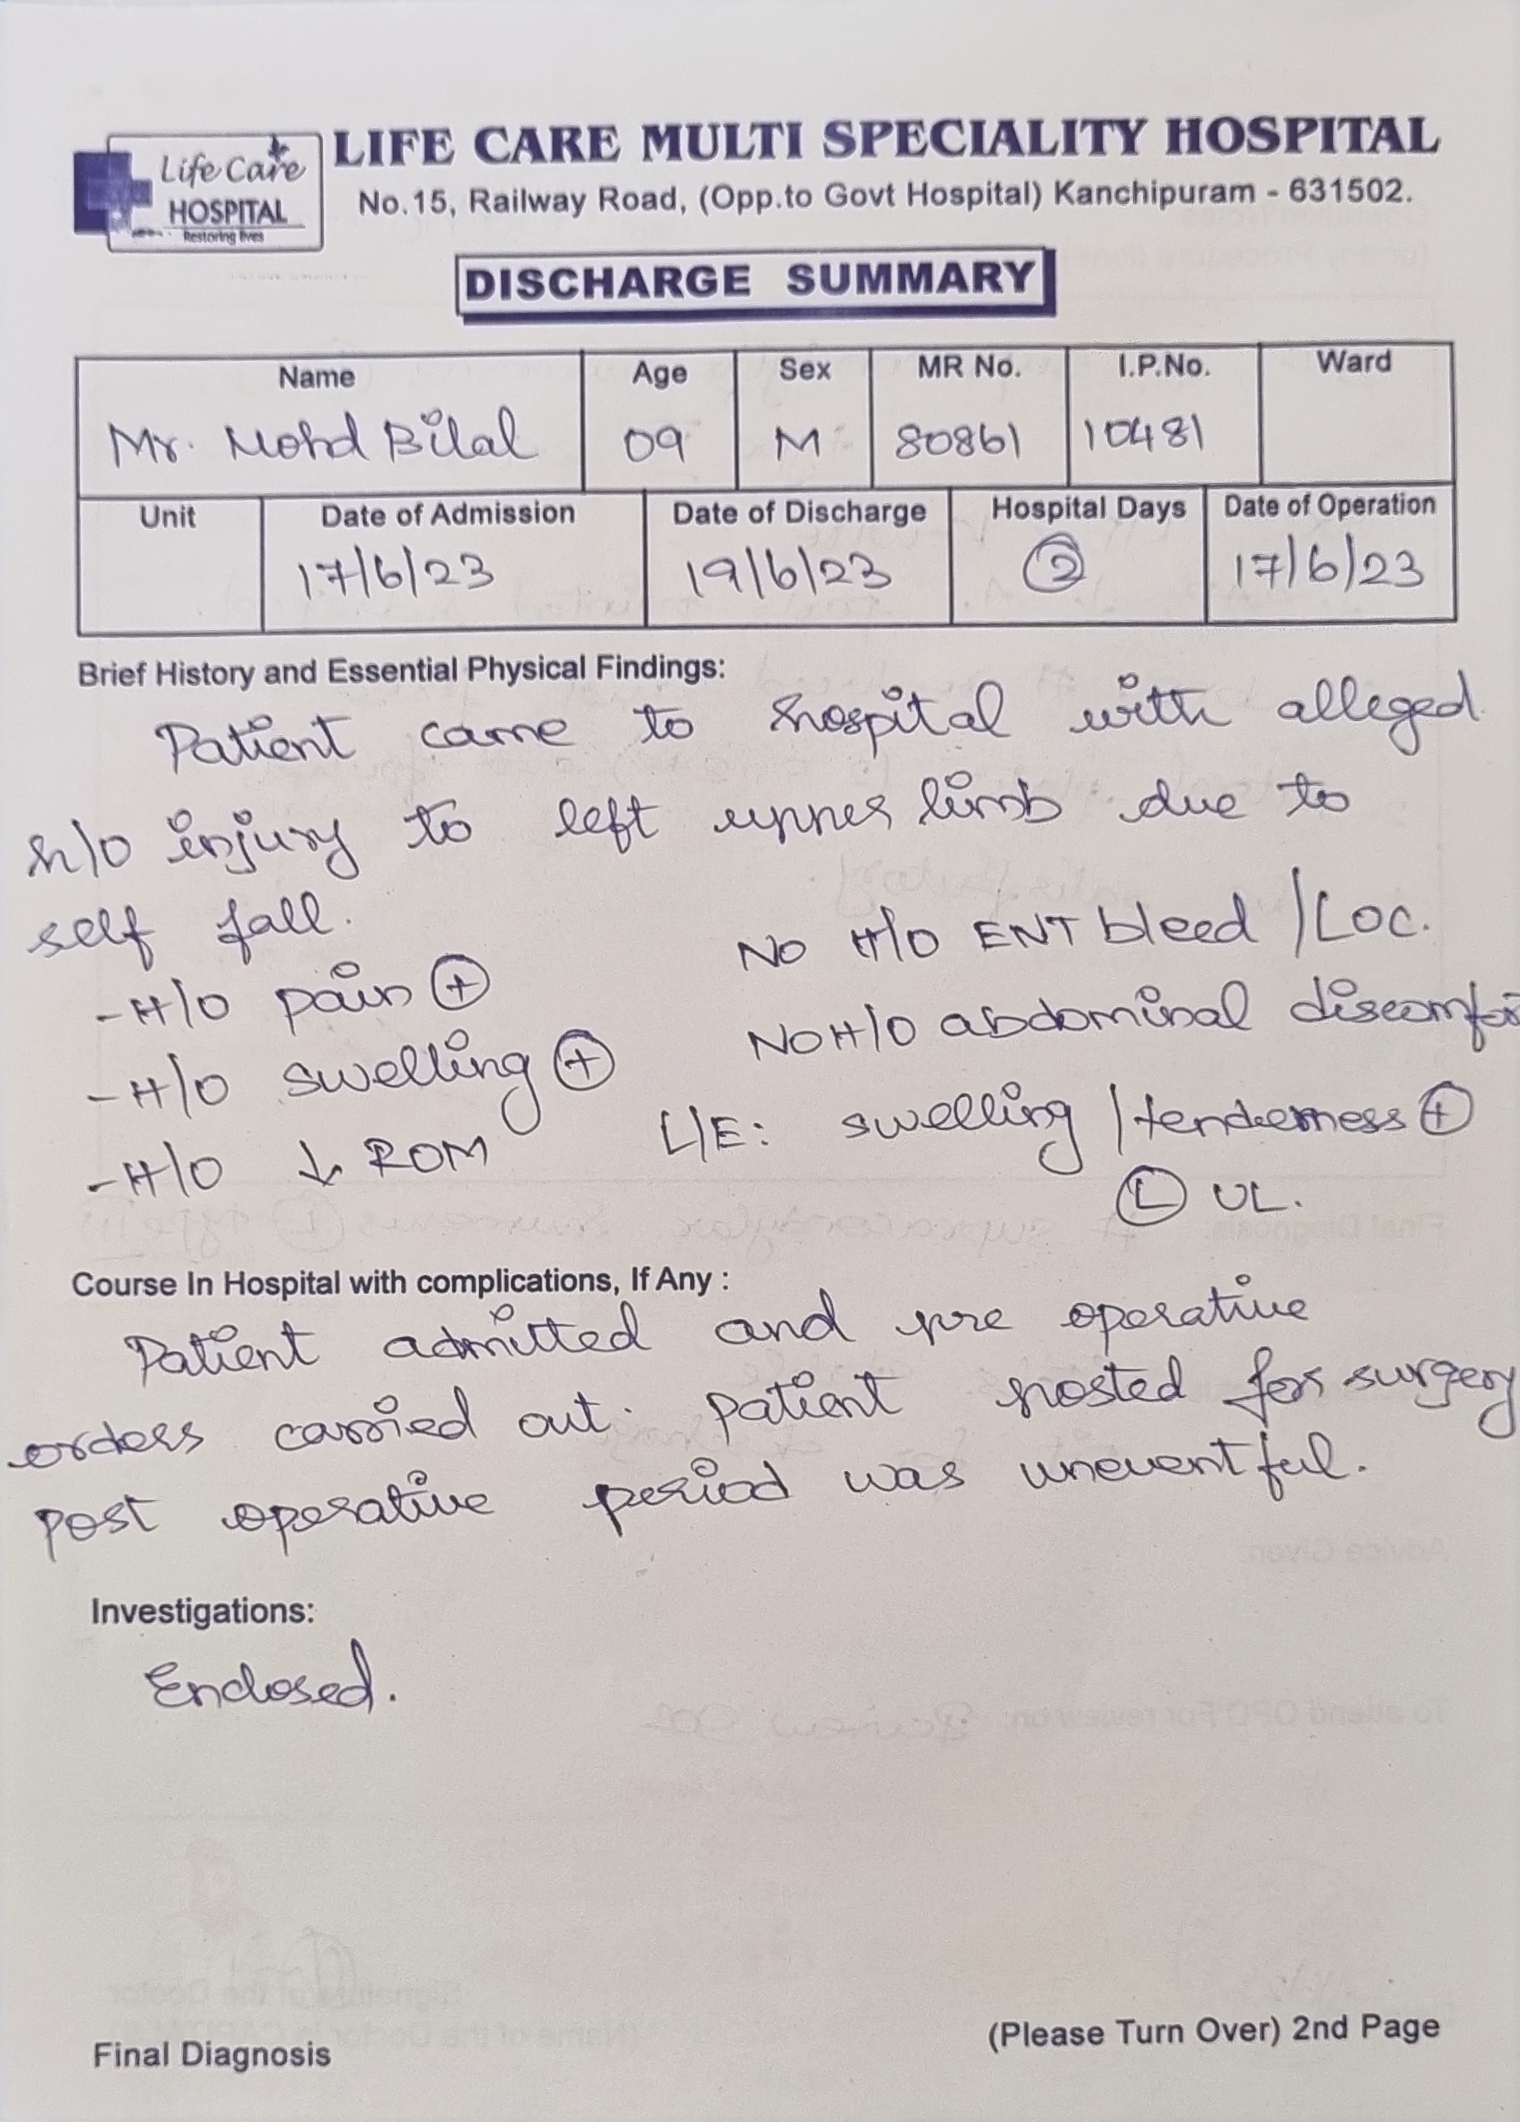 Life Care
HOSPITAL
Restoring lives
LIFE CARE MULTI SPECIALITY HOSPITAL
No.15, Railway Road, (Opp.to Govt Hospital) Kanchipuram - 631502.
DISCHARGE SUMMARY
Name Age Sex MR No. I.P.No. Ward
Mr. Mohd Bilal 09 M 80861 10481
Unit Date of Admission Date of Discharge Hospital Days Date of Operation
17/6/23 19/6/23 2 17/6/23
Brief History and Essential Physical Findings:
Patient came to hospital with alleged
h/o injury to left upper limb due to
self fall.
No H/O ENT bleed / LOC.
- H/O pain ⊕
No H/O abdominal discomfo
- H/O swelling ⊕
L/E: swelling / tenderness ⊕
- H/O ↓ ROM
Ⓛ UL.
Course In Hospital with complications, If Any :
Patient admitted and pre operative
orders carried out. Patient posted for surgery
post operative period was uneventful.
Investigations:
Enclosed.
Final Diagnosis
(Please Turn Over) 2nd Page